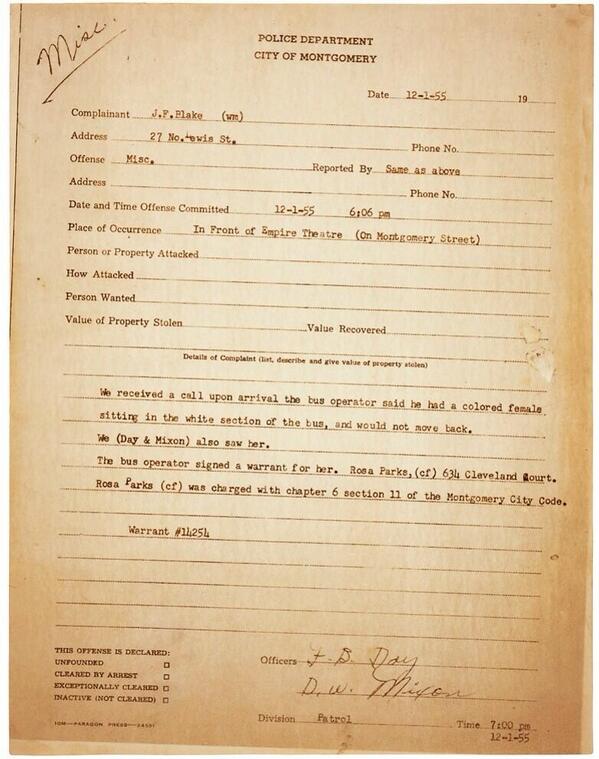 Misc.
POLICE DEPARTMENT
CITY OF MONTGOMERY
Date 12-1-55 19
Complainant J.F.Blake (wm)
Address 27 No.Lewis St.
Phone No.
Offense Misc. Reported By Same as above
Address Phone No.
Date and Time Offense Committed 12-1-55 6:06 pm
Place of Occurrence In Front of Empire Theatre (On Montgomery Street)
Person or Property Attacked
How Attacked
Person Wanted
Value of Property Stolen Value Recovered
Details of Complaint (list, describe and give value of property stolen)
We received a call upon arrival the bus operator said he had a colored female
sitting in the white section of the bus, and would not move back.
We (Day & Mixon) also saw her.
The bus operator signed a warrant for her. Rosa Parks,(cf) 634 Cleveland Court.
Rosa Parks (cf) was charged with chapter 6 section 11 of the Montgomery City Code.
Warrant #14254
THIS OFFENSE IS DECLARED:
UNFOUNDED
CLEARED BY ARREST
EXCEPTIONALLY CLEARED
INACTIVE (NOT CLEARED)
Officers F. B. Day
D. W. Mixon
Division Patrol Time 7:00 pm
12-1-55
10M—PARAGON PRESS—24551